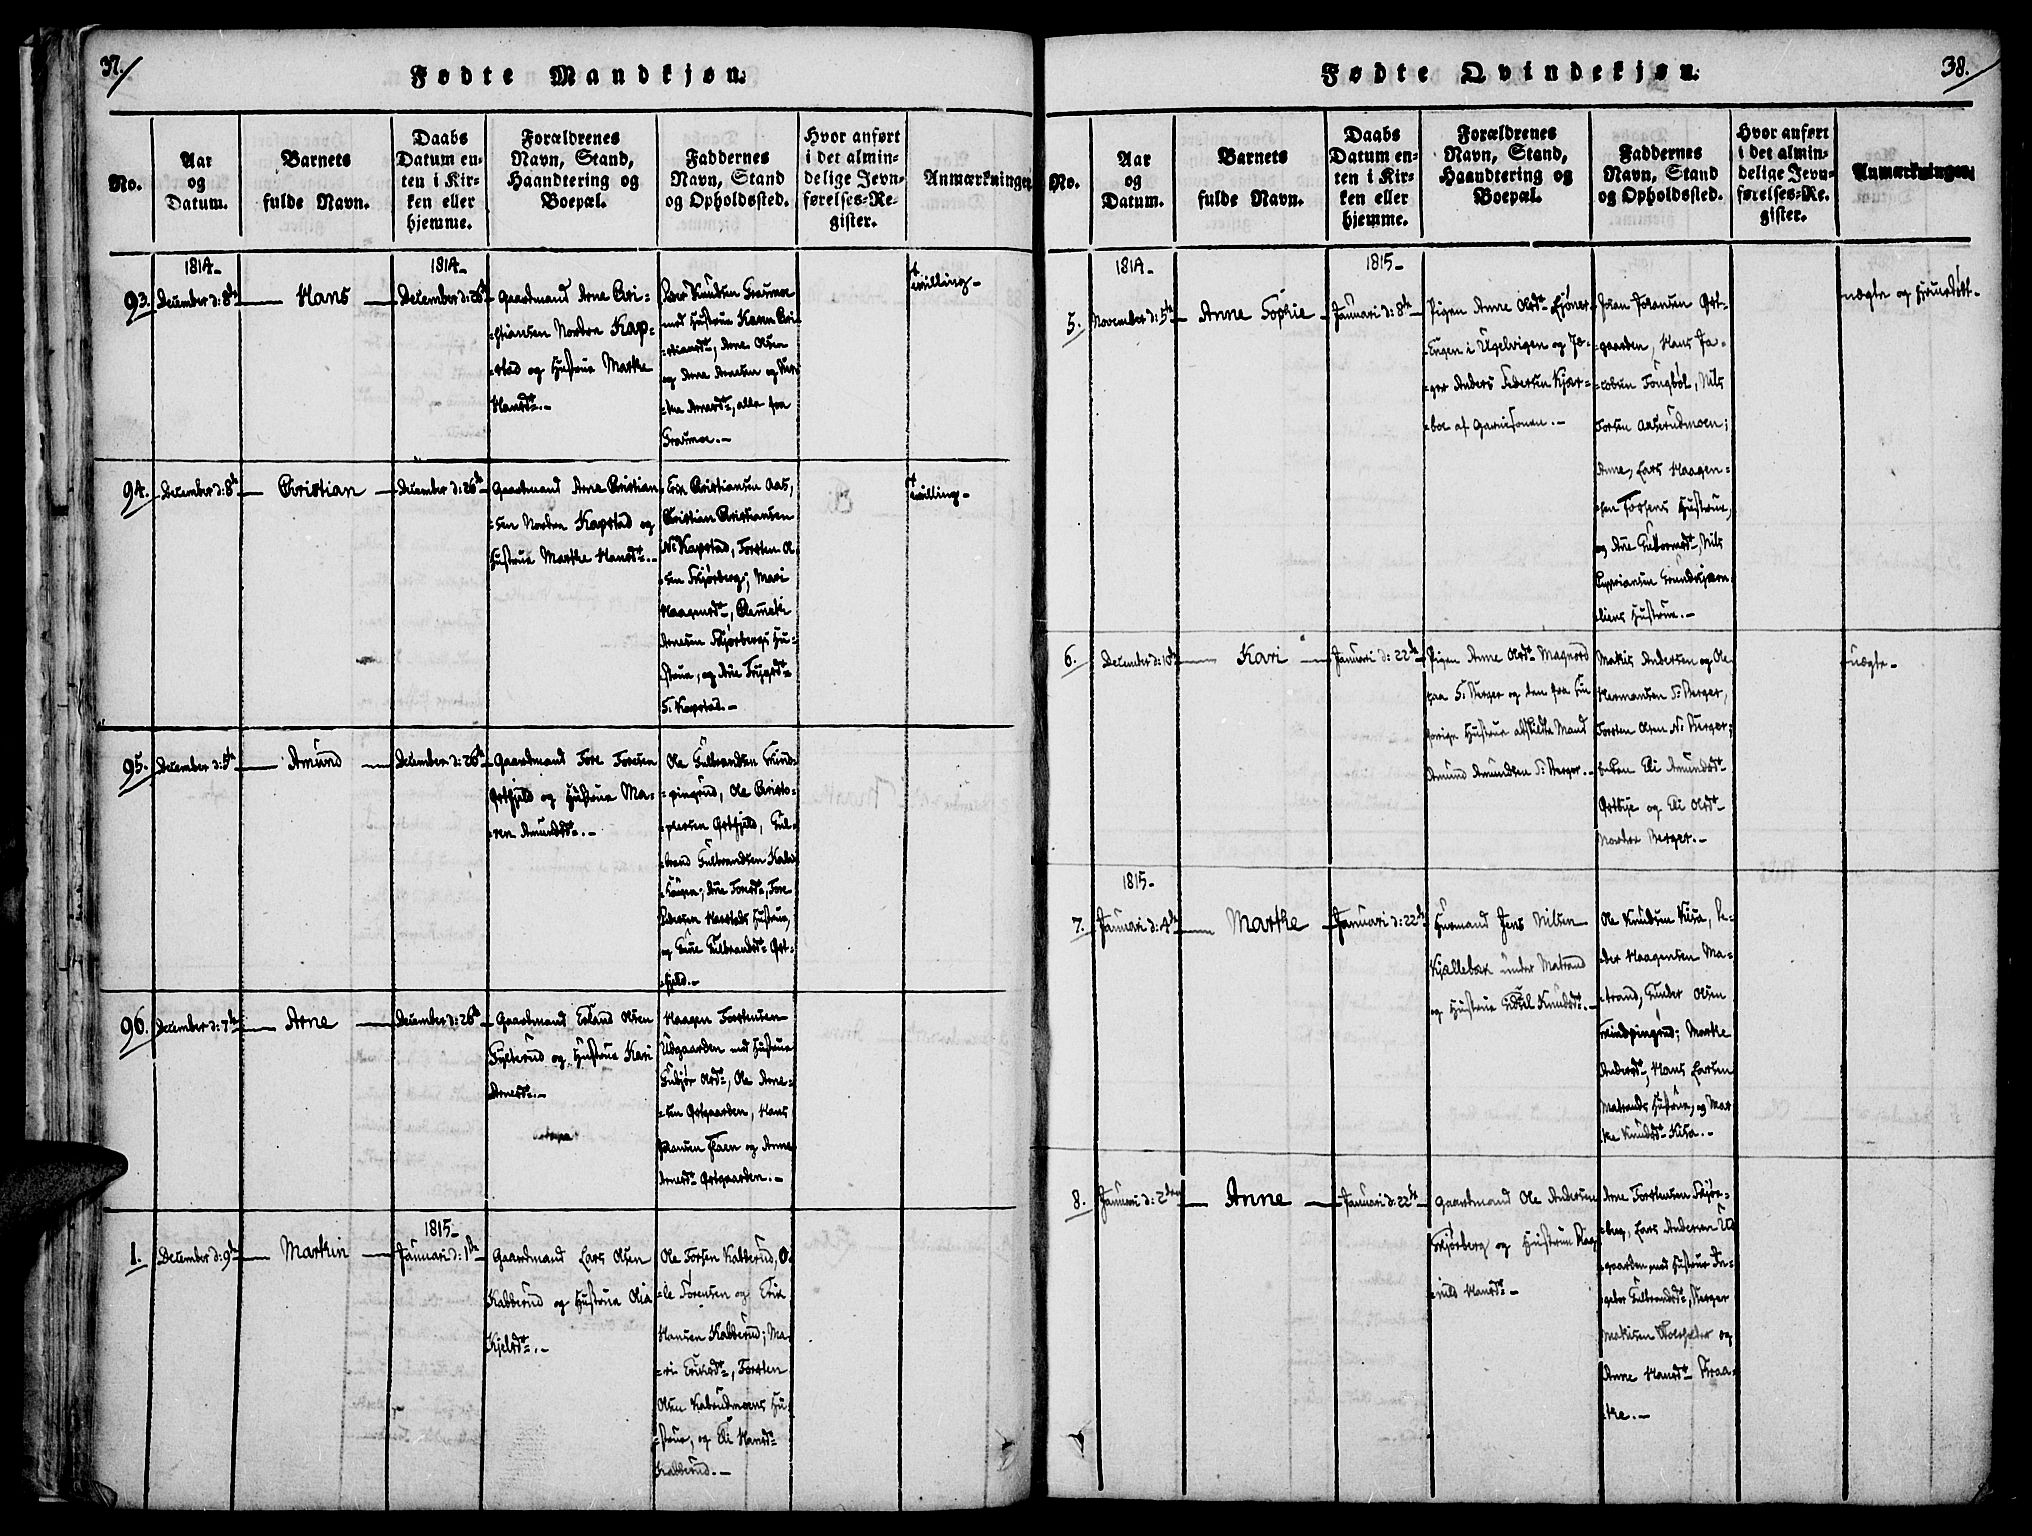 37.
Fødte Mandkjøn.
No.
Aar
og
Datum.
Barnets
fulde Navn.
Daabs
Datum en-
ten i Kir-
ken eller
hjemme.
Forældrenes
Navn, Stand,
Haandtering og
Boepæl.
Faddernes
Navn, Stand
og Opholdssted.
Hvor anført
i det almin-
delige Jevn-
førelses-Re-
gister.
Anmærkninger.
93.
1814-
December d: 8de
Hans
1814-
December d: 26de
Gaardmand Arne Chri-
-stiansen Nordre Kap-
-stad og Hustrue Marthe
Hansdt.-
Peer Knudsen Graumoe
med Hustrue Karen Chri-
-stiansdt, Arne Olsen
og Arne Arnesen og
Arnesdt, alle fra
Graumoe.-
tvilling-
94.
December d: 8de
Christian
December d: 26de
Gaardmand Arne Christian
-sen Nordre Kapstad og
Hustrue Marthe Hansdt.-
Erik Christiansen Aas,
Christian Christiansen
N: Kapstad, Torsten O-
-sen Skjørberg; Mari
Haagensdt,
Arnesen Skjørbergs Hu-
-strue, og Ane Trygsdt
S: Kapstad.-
tvilling-
95.
December d: 5te
Amund
December d: 26de
Gaardmand Tore Toresen
Ørtfjeld og Hustrue Ma-
-ren Amundsdt.-
Ole Gulbrandsen Grinds-
-pingrud, Ole Christo-
-phersen Ørtfjeld, Gul-
-brand Gulbrandsen
Ane Toresdt, Tore
Pedersen Harstads Hustrue,
og Gulbrandsdt Ørt-
-fjeld.-
96.
December d: 7de
Arne
December d: 26de
Gaardmand Erland Olsen
Fylterud og Hustrue Kari
Arnesdt.-
Haagen Torstensen
Udgaarden med Hustrue
Gubjør Olsdt, Ole Arne-
-sen Ørtgaarden, Hans
Johansen Flaen og Anne
Arnesdt Ørtgaarden.-
1.
December d: 9de
Marthin
1815-
Januari d: 1te
Gaardmand Lars Olsen
Kabberud og Hustrue Olia
Kjelsdt.-
Ole Torsen Kabberud, O-
-le Sørensen og Erik
Hansen Kabberud; Ma-
-ri Eriksdt, Torsten
Olsen Kabrudmoens Hu-
-strue, og Eli Hansdt
Kabberud.-
38.
Fødte Qvindekjøn.
No.
Aar
og
Datum.
Barnets
fulde Navn.
Daabs
Datum en-
ten i Kir-
ken eller
hjemme.
Forældrenes
Navn, Stand,
Haandtering og
Boepæl.
Faddernes
Navn, Stand
og Opholdssted.
Hvor anført
i det almin-
delige Jevn-
førelses-Re-
gister.
Anmærkninger.
5.
1814-
November d: 5te
Anne Sophie
1815-
Januari d: 8de
Pigen Anne Olsdt
Engen i Ugelvigen og Jæ-
-ger Anders Pedersen Kjær-
-boe af Garnisonen.-
Johan Johansen Ørt-
-gaarden, Hans Ja-
-cobsen Tongbøl, Nils
Torsen Aaserudmoen;
Anne, Lars Haagen-
-sen Torsens Hustrue,
og Ane Nils
Cypriansen
-liens Hustrue.-
uægte og
6.
December d: 10de
Kari
Januari d: 22de
Pigen Anne Olsdt Magnord
fra S: Berger og den fra
forige Hustrue adskildte Mand
Amund Amundsen S: Berger.-
Mathis Andersen og Ole
Hermansen S: Berger,
Torsten Olsen N: Berger;
Eli Amundsdt
Ørtbye og Eli Olsdt
Nordre Berger.-
uægte-
7.
1815-
Januari d: 4de
Marthe
Januari d: 22de
Huusmand Jens Nilsen
Kjællebæk under Matrand
og Hustrue Sidsel Knudsdt.-
Ole Knudsen Kisa, Pe-
-der Haagensen Ma-
-trand, Gunder Olsen
Grindspingrud; Marthe
Andersdt, Hans Larsen
Matrands Hustrue, og Mar-
-the Knudsdt Kisa.-
8.
Januari d: 2den
Anne
Januari d: 22de
Gaardmand Ole Andersen
Skjørberg og Hustrue Rag-
-nild Hansdt-
Arne Torstensen Skjør-
-berg, Lars Andersen Ud-
-gaarden med Hustrue In-
-gebor Gulbrandsdt, Berger
Mathisen og
Anne Hansdt Kraa-
-ke.-